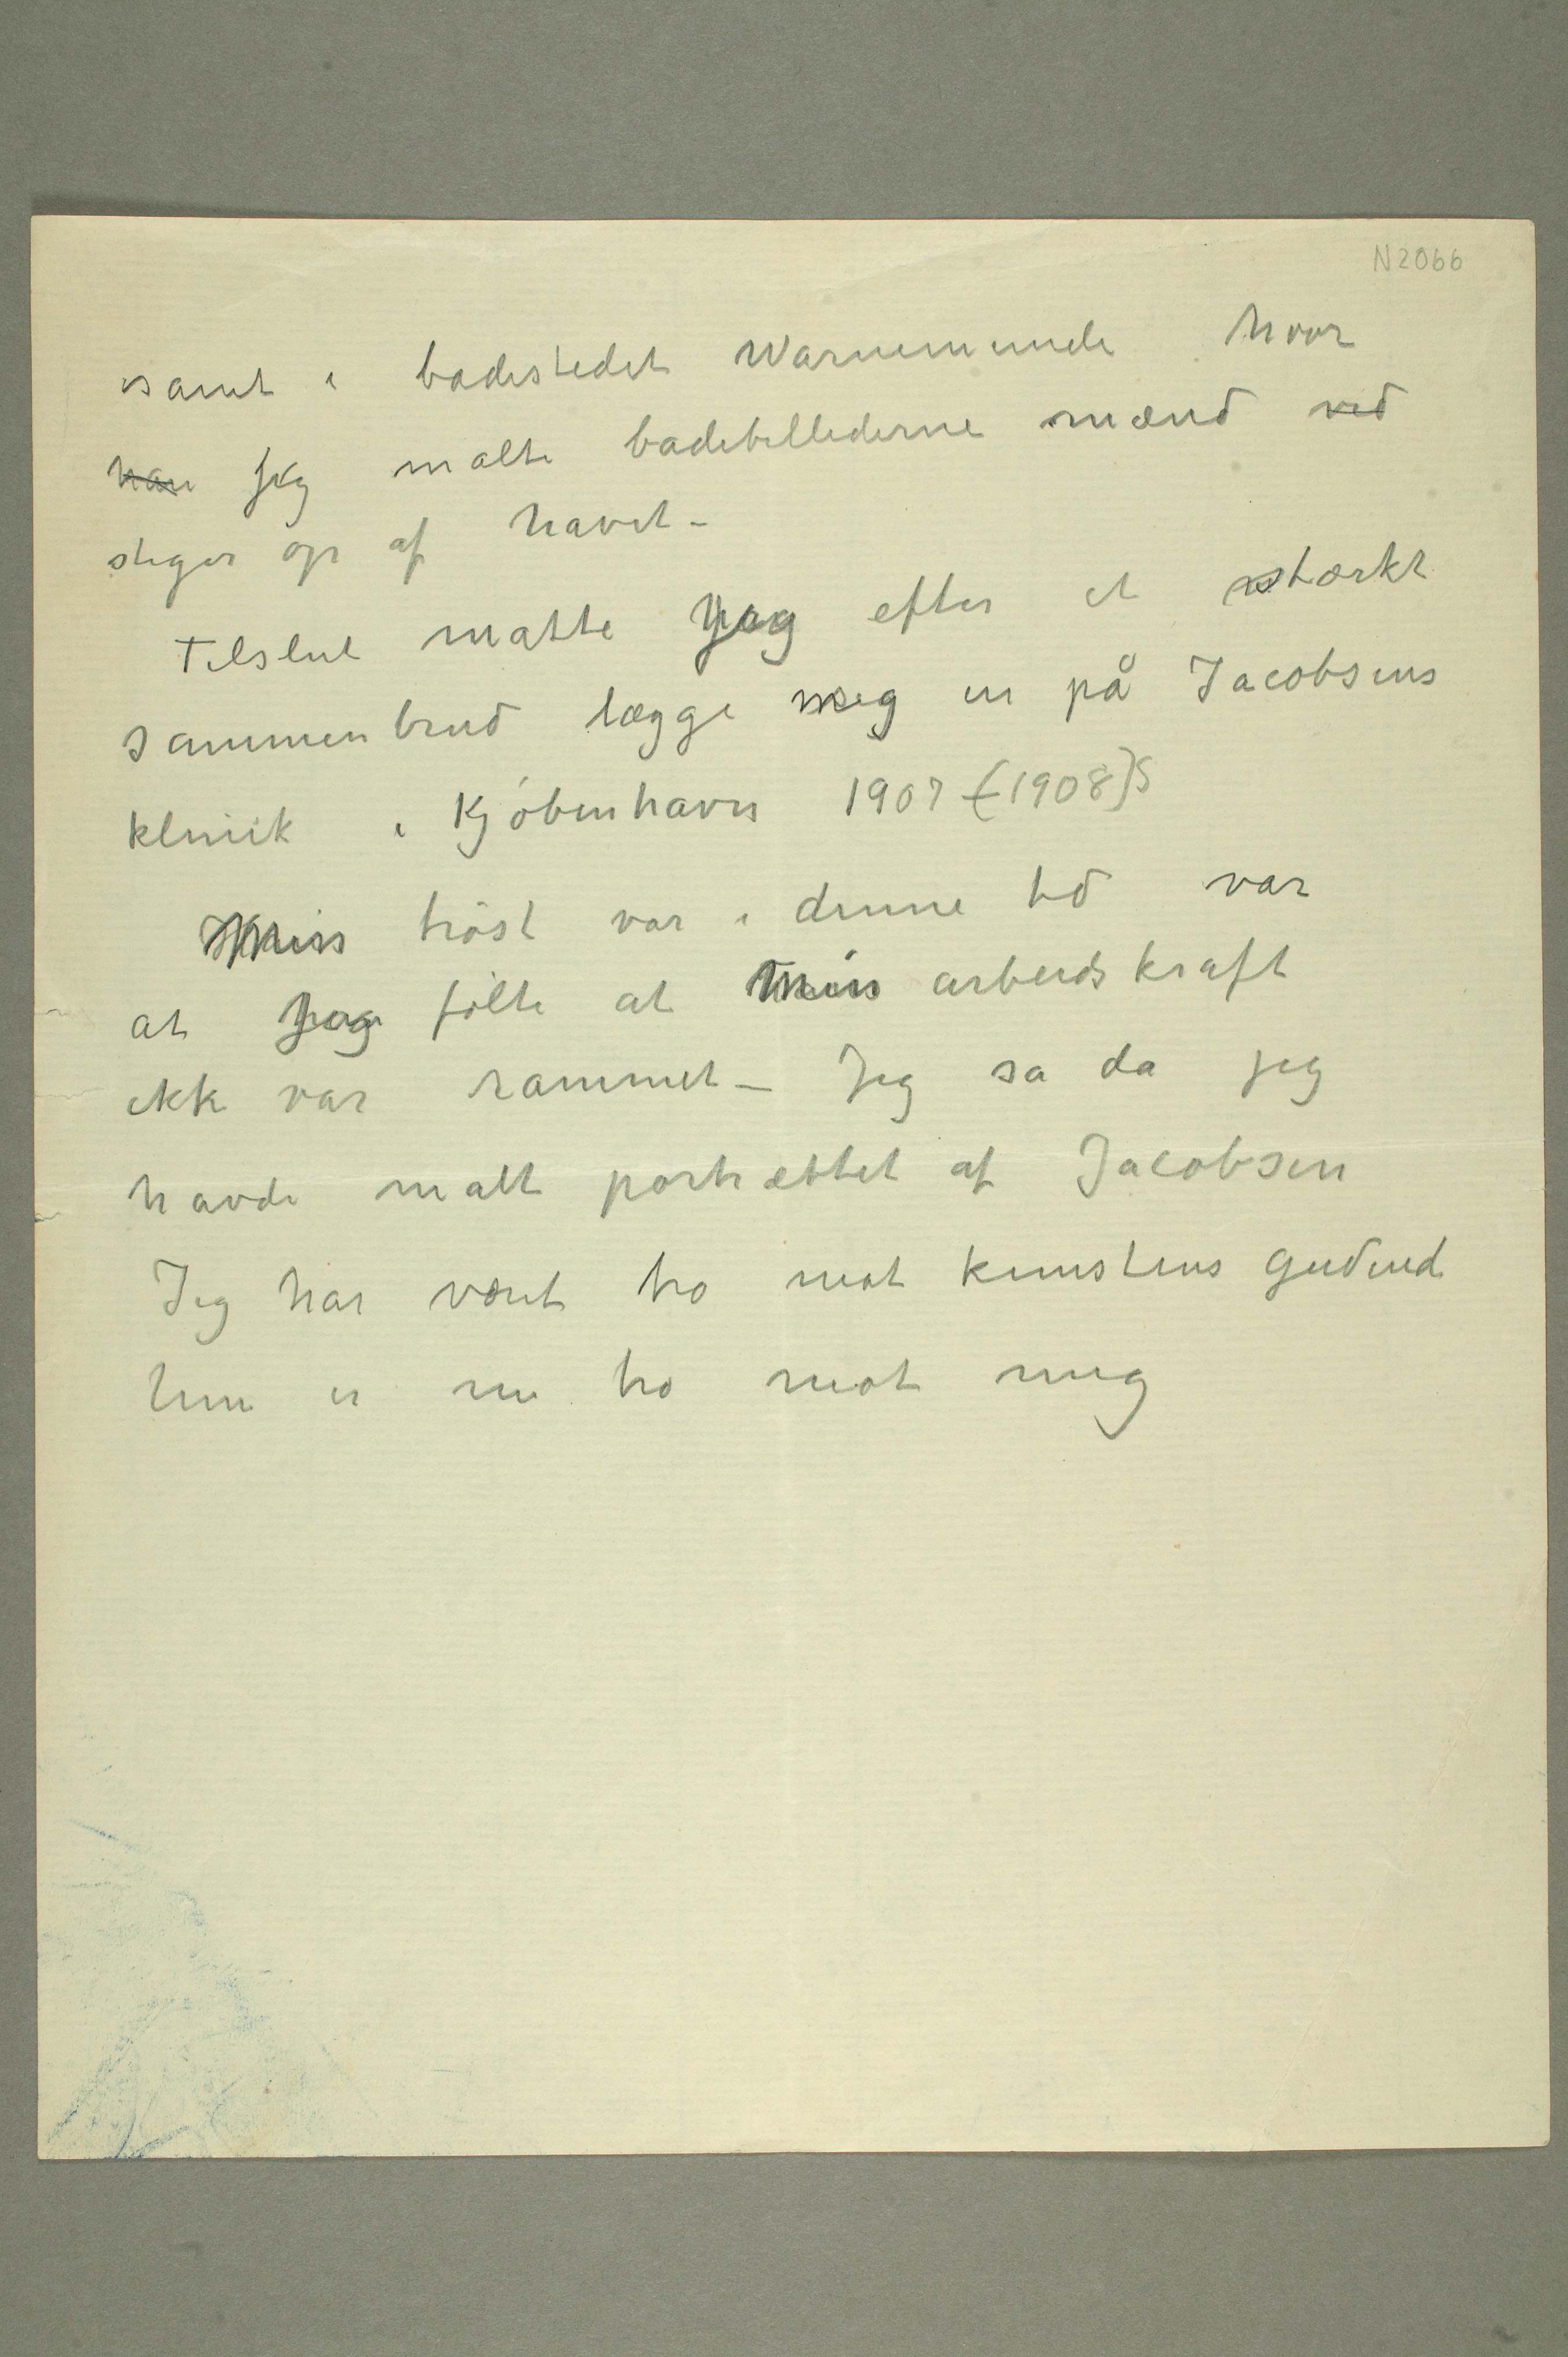 N2066
samt i badestedet Warnemunde hvor
han jeg malte badebillederne mænd ved
stiger op af havet –
Tilslut matte jeg efter et stærkt
sammenbrud lægge meg in på Jacobsens
klinik i Kjöbenhavn 1907 (1908)
Min tröst var i denne tid var
at jeg fölte at min arbeidskraft
ikke var rammet – Jeg sa da jeg
havde malt portrættet af Jacobsen
Jeg har været tro mot kunstens gudind
hun er nu tro mot mig